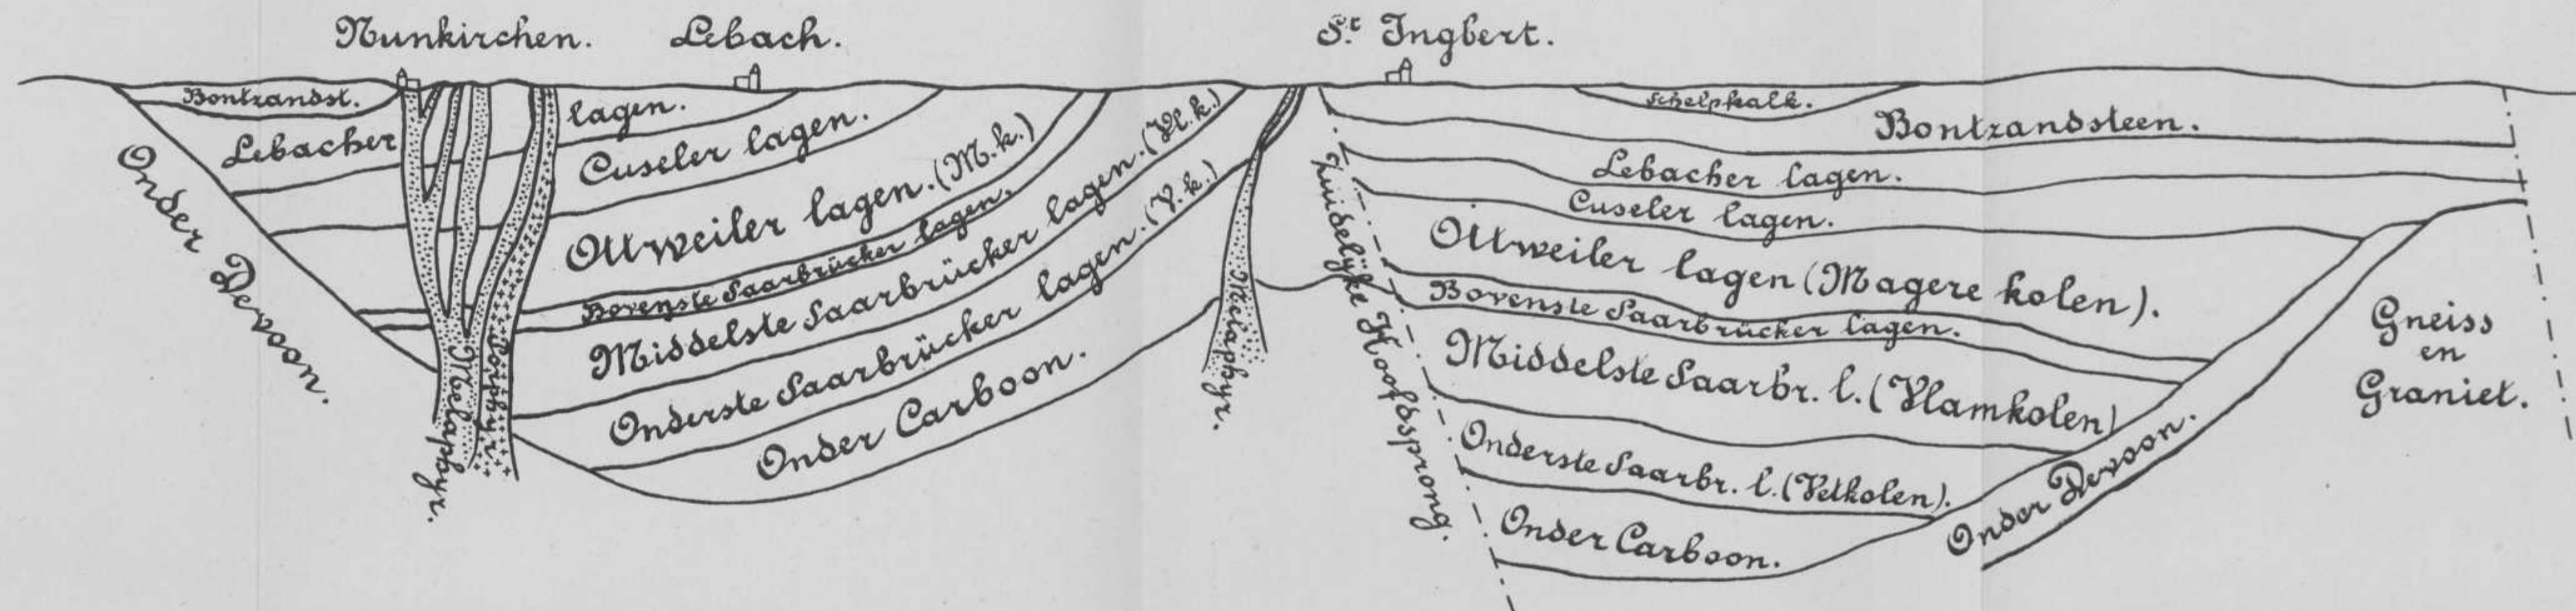 Nunkirchen. Lebach. St Ingbert.
Bontzandst.
Lebacher lagen.
Cuseler lagen.
Ottweiler lagen. (M.k.)
Bovenste Saarbrücker lagen.
Middelste Saarbrücker lagen. (Vl.k.)
Onderste Saarbrücker lagen. (V.k.)
Onder Carboon.
Onder Devoon.
Melaphyr.
Porphyr
Melaphyr.
Zuidelijke Hoofdsprong.
Schelpkalk.
Bontzandsteen.
Lebacher lagen.
Cuseler lagen.
Ottweiler lagen (Magere kolen).
Bovenste Saarbrücker lagen.
Middelste Saarbr. l. (Vlamkolen)
Onderste Saarbr. l. (Vetkolen).
Onder Carboon.
Onder Devoon.
Gneiss
en
Graniet.